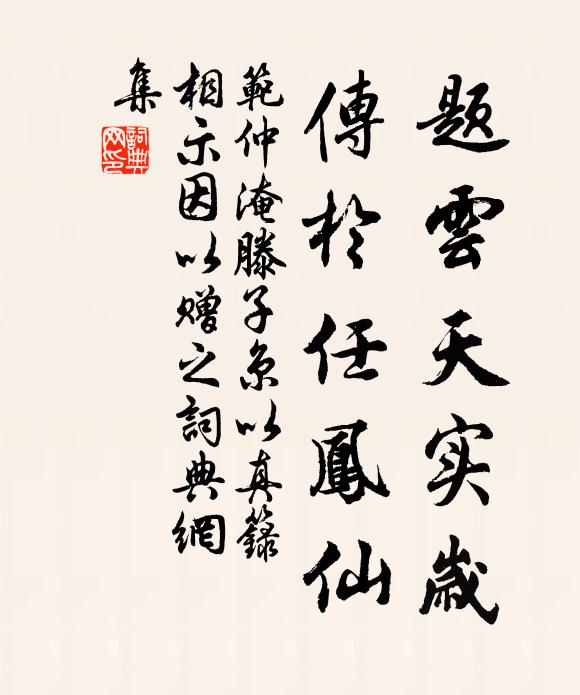 題雲天实歲
傳於任鳳仙
範仲淹滕子京以真籙
相示因以贈之詞典網
集
詞典
网印